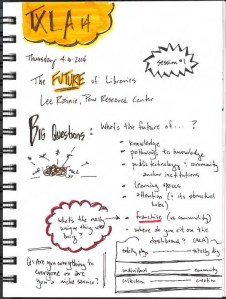 TXLA 14
session #1
Thursday 4.10.2014
The FUTURE of Libraries
Lee Rainie, Pew Research Center
BIG QUESTIONS:
What's the future of...?
• knowledge
• pathways to knowledge
• public technology & community
anchor institutions
• learning spaces
• attention (& its structural
holes)
• franchise (vs community)
• where do you sit on the
dashboard? (ALA)
what's the really
unique thing we
bring?
Q: Are you everything to
everyone or are
you a niche service?
totally phys.
totally dig
individual
community
collection
creation